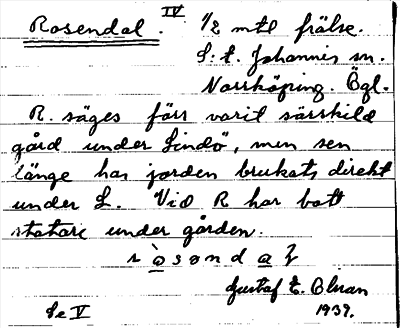 Rosendal. IV 1/2 mtl frälse.
S:t Johannis sn.
Norrköping. Ögl.
R. säges förr varit särskild
gård under Lindö, men sen
länge har jorden brukats direkt
under L. Vid R har bott
statare under gården.
Gustaf E. Olman
Se V 1939.